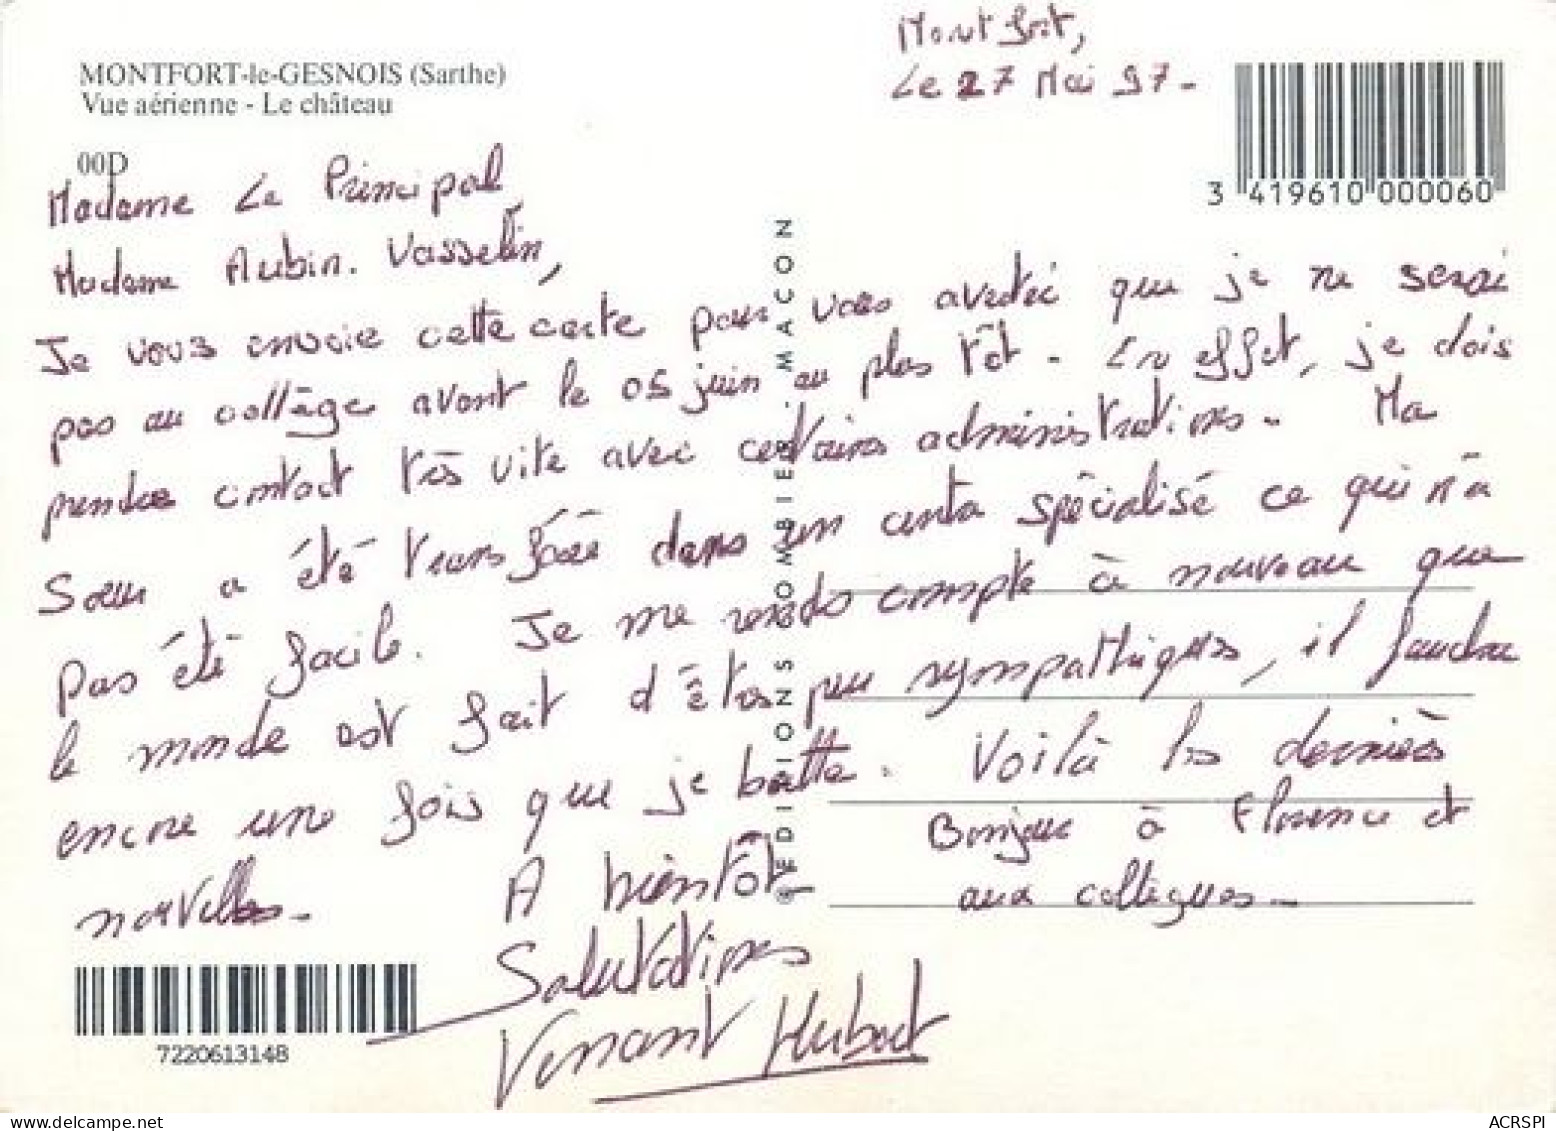 MONTFORT-le-GESNOIS (Sarthe)
Vue aérienne - Le château
00D
Montfort,
Le 27 Mai 97-
3 419610 000060
Madame Le Principal,
Madame Aubin. Vasselin,
Je vous envoie cette carte pour vous avertir que je ne serai
pas au collège avant le 05 juin au plus tôt - En effet, je dois
prendre contact très vite avec certaines administrations - Ma
Soeur a été transférée dans un centre spécialisé ce qui n'a
pas été facile. Je me rends compte à nouveau que
le monde est fait d'êtres peu sympathiques, il faudra
encore une fois que je batte. Voilà les dernières
nouvelles -
Bonjour à Florence et
aux collègues -
A bientôt
Salutations
Venant Hubert
EDITIONS COMBIER MACON
7220613148
ACRSPI